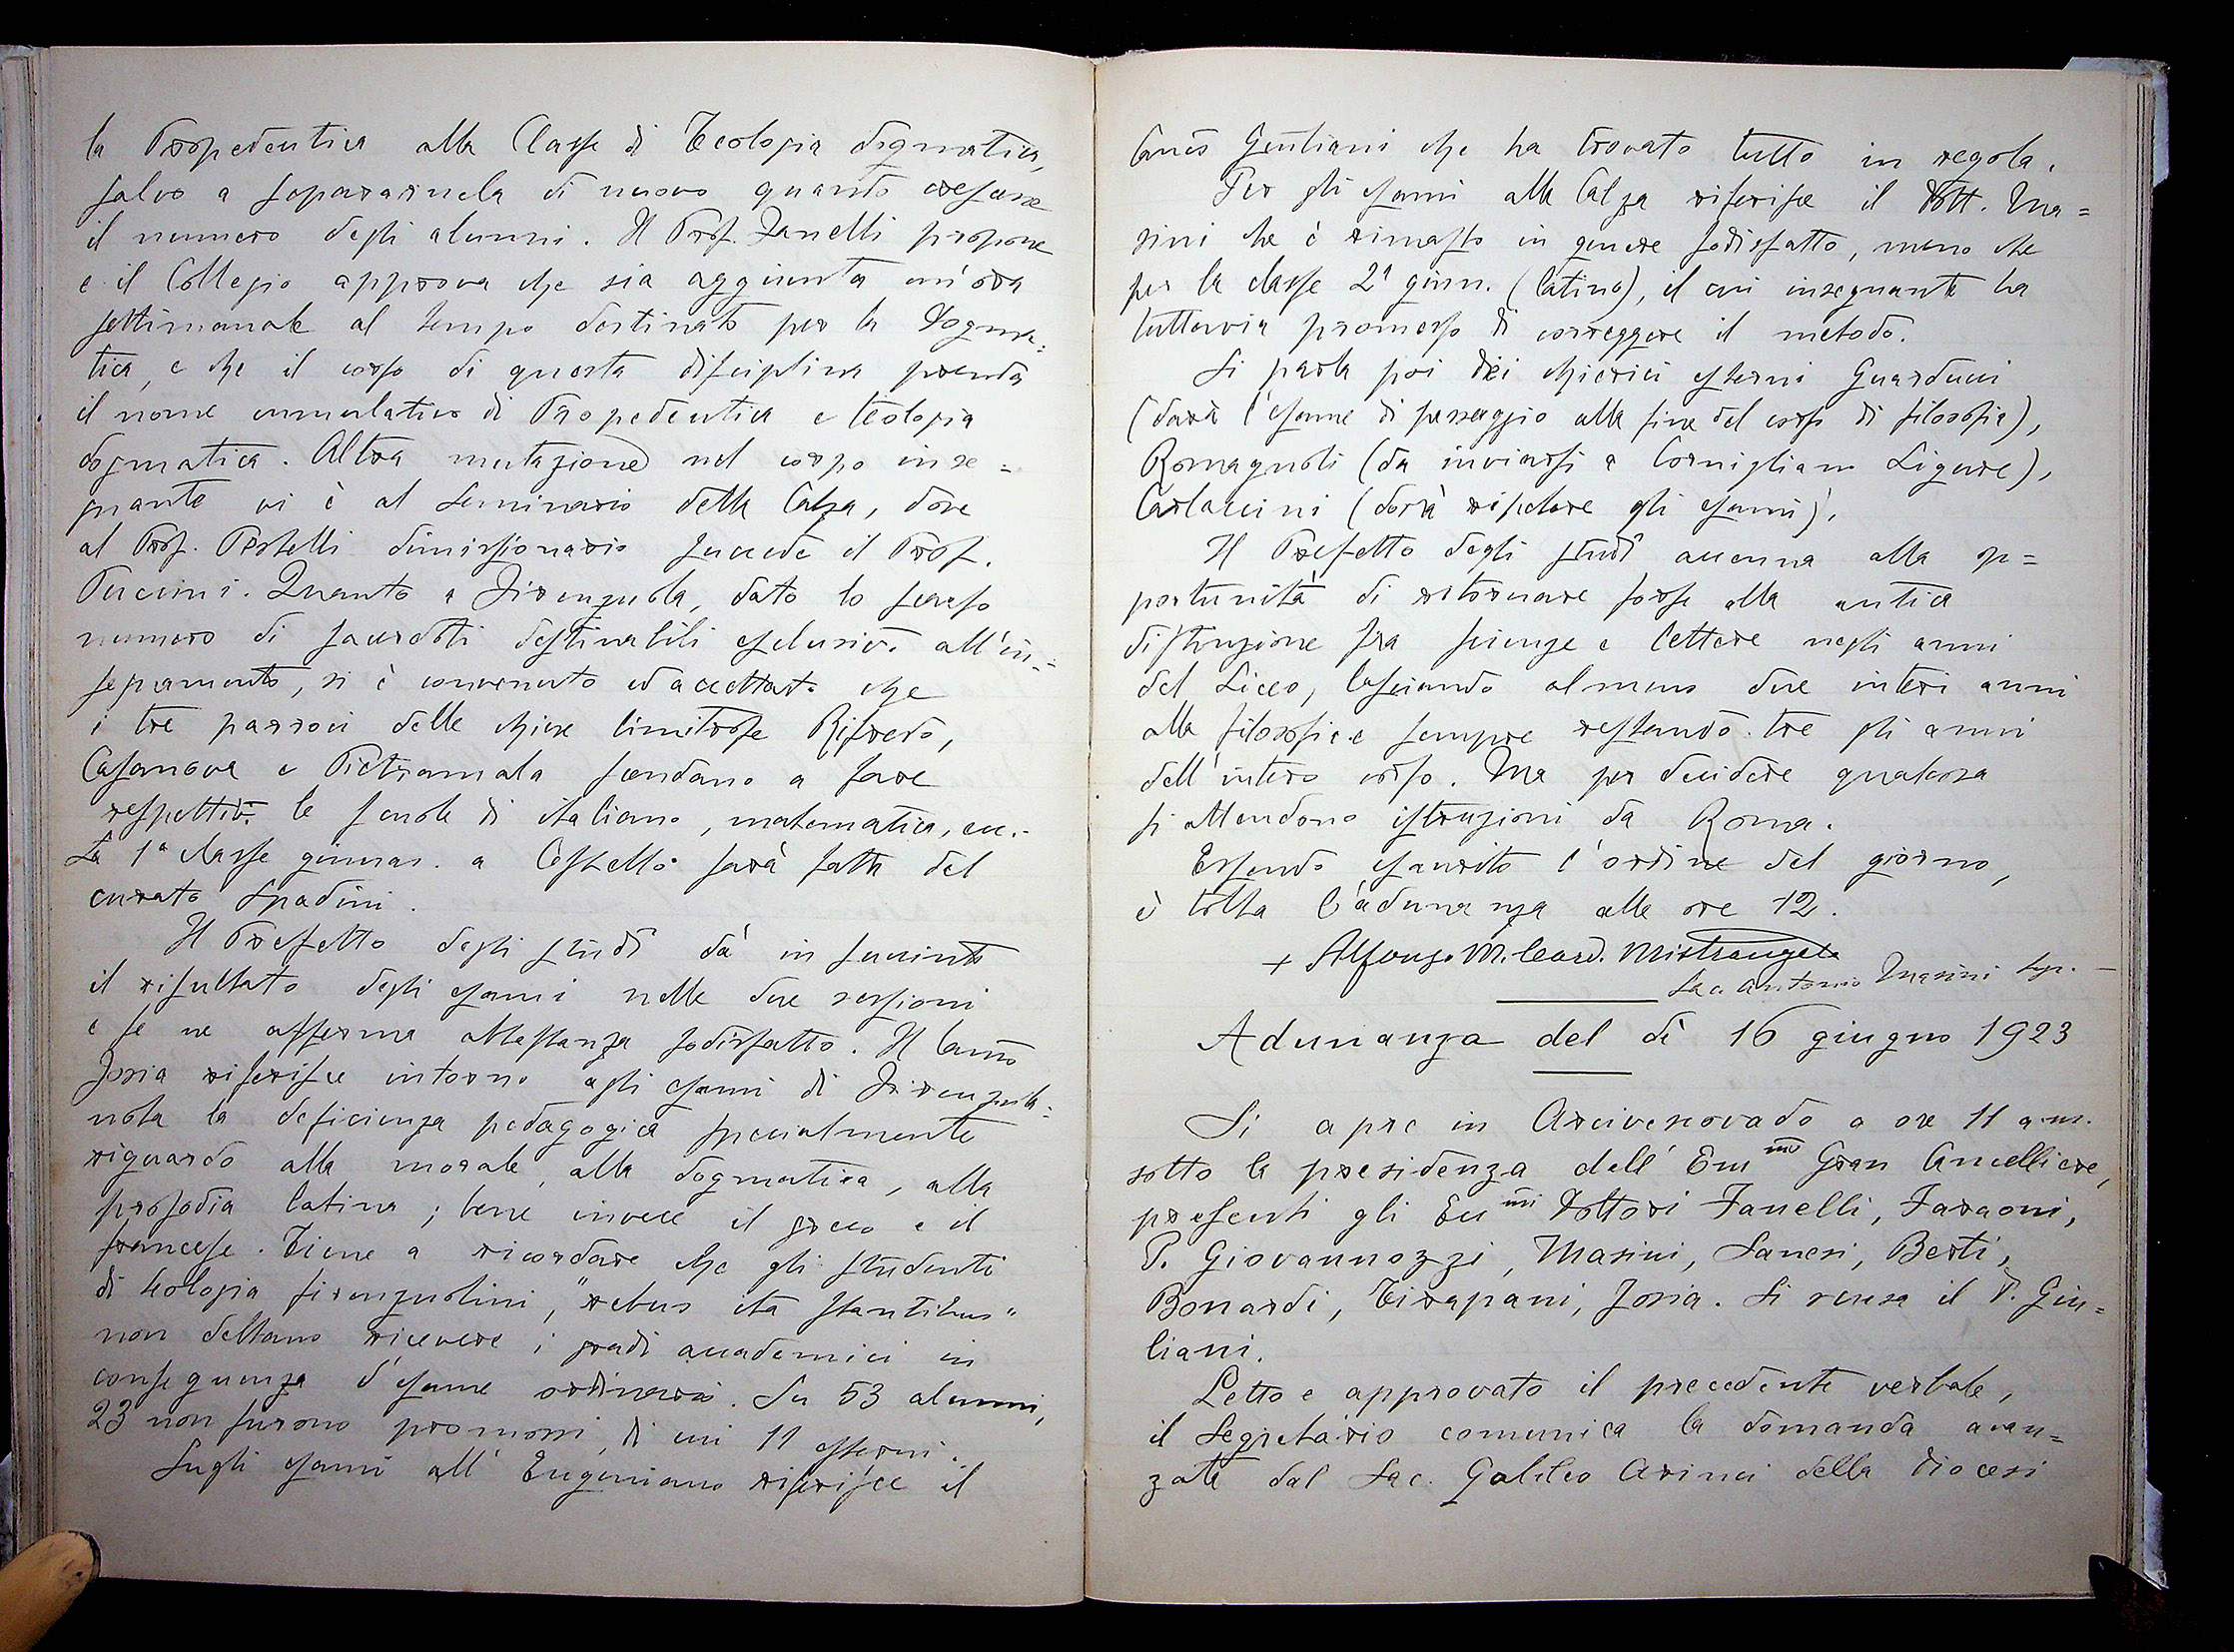 la Propedeutica alla Classe di Teologia dogmatica,
salvo a separarnela di nuovo quando cresca
il numero degli alunni. Il Prof. Zanelli propone
e il Collegio approva che sia aggiunta un'ora
settimanale al tempo destinato per la Dogma=
tica, e che il corso di questa disciplina prenda
il nome cumulativo di Propedeutica e teologia
dogmatica. Altra mutazione nel corpo inse=
gnante vi è al Seminario della Calza, dove
al Prof. Pestelli dimissionario succede il Prof.
Puccini. Quanto a Firenzuola, dato lo scarso
numero di sacerdoti destinabili esclusiv. all'in=
segnamento, si è convenuto ed accettato che
i tre parroci delle chiese limitrofe Rifredo,
Casanova e Pietramala scendano a fare
respettiv. le scuole di italiano, matematica, ecc.-
La 1ª classe ginnas. a Castello sarà fatta dal
curato Spadini.
Il Prefetto degli studî dà in succinto
il risultato degli esami nelle due sessioni
e se ne afferma abbastanza sodisfatto. Il Canco
Joria riferisce intorno agli esami di Firenzuola:
nota la deficienza pedagogica specialmente
riguardo alla morale, alla dogmatica, alla
prosodia latina; bene invece il greco e il
francese. Tiene a ricordare che gli studenti
di teologia firenzuolini, "rebus ita stantibus"
non debbano ricevere i gradi accademici in
conseguenza d'esame ordinario. Su 53 alunni,
23 non furono promossi, di cui 11 esterni.
Sugli esami all'Eugeniano riferisce il
Canco Giuliani che ha trovato tutto in regola.
Per gli esami alla Calza riferisce il Dott. Ma=
sini che è rimasto in genere sodisfatto, meno che
per la classe 2ª ginn. (latino), il cui insegnante ha
tuttavia promesso di correggere il metodo.
Si parla poi dei chierici esterni Guarducci
(darà l'esame di passaggio alla fine del corso di filosofia),
Romagnoli (da inviarsi a Cornigliano Ligure),
Carlaccini (dovrà ripetere gli esami).
Il Prefetto degli studî accenna alla op=
portunità di ritornare forse alla antica
distinzione fra scienze e lettere negli anni
del Liceo, lasciando almeno due interi anni
alla filosofia e sempre restando tre gli anni
dell'intero corso. Ma per decidere qualcosa
si attendono istruzioni da Roma.
Essendo esaurito l'ordine del giorno,
è tolta l'adunanza alle ore 12.
+ Alfonso M. Card. Mistrangelo
Sac. Antonio Masini Segr. —
Adunanza del dì 16 giugno 1923
Si apre in Arcivescovado a ore 11 a.m.
sotto la presidenza dell'Emmo Gran Cancelliere,
presenti gli Eccmi Dottori Fanelli, Faraoni,
P. Giovannozzi, Masini, Sanesi, Berti,
Bonardi, Tirapani, Joria. Si scusa il P. Giu=
liani.
Letto e approvato il precedente verbale,
il Segretario comunica la domanda avan=
zata dal Sac. Galileo Arinci della diocesi